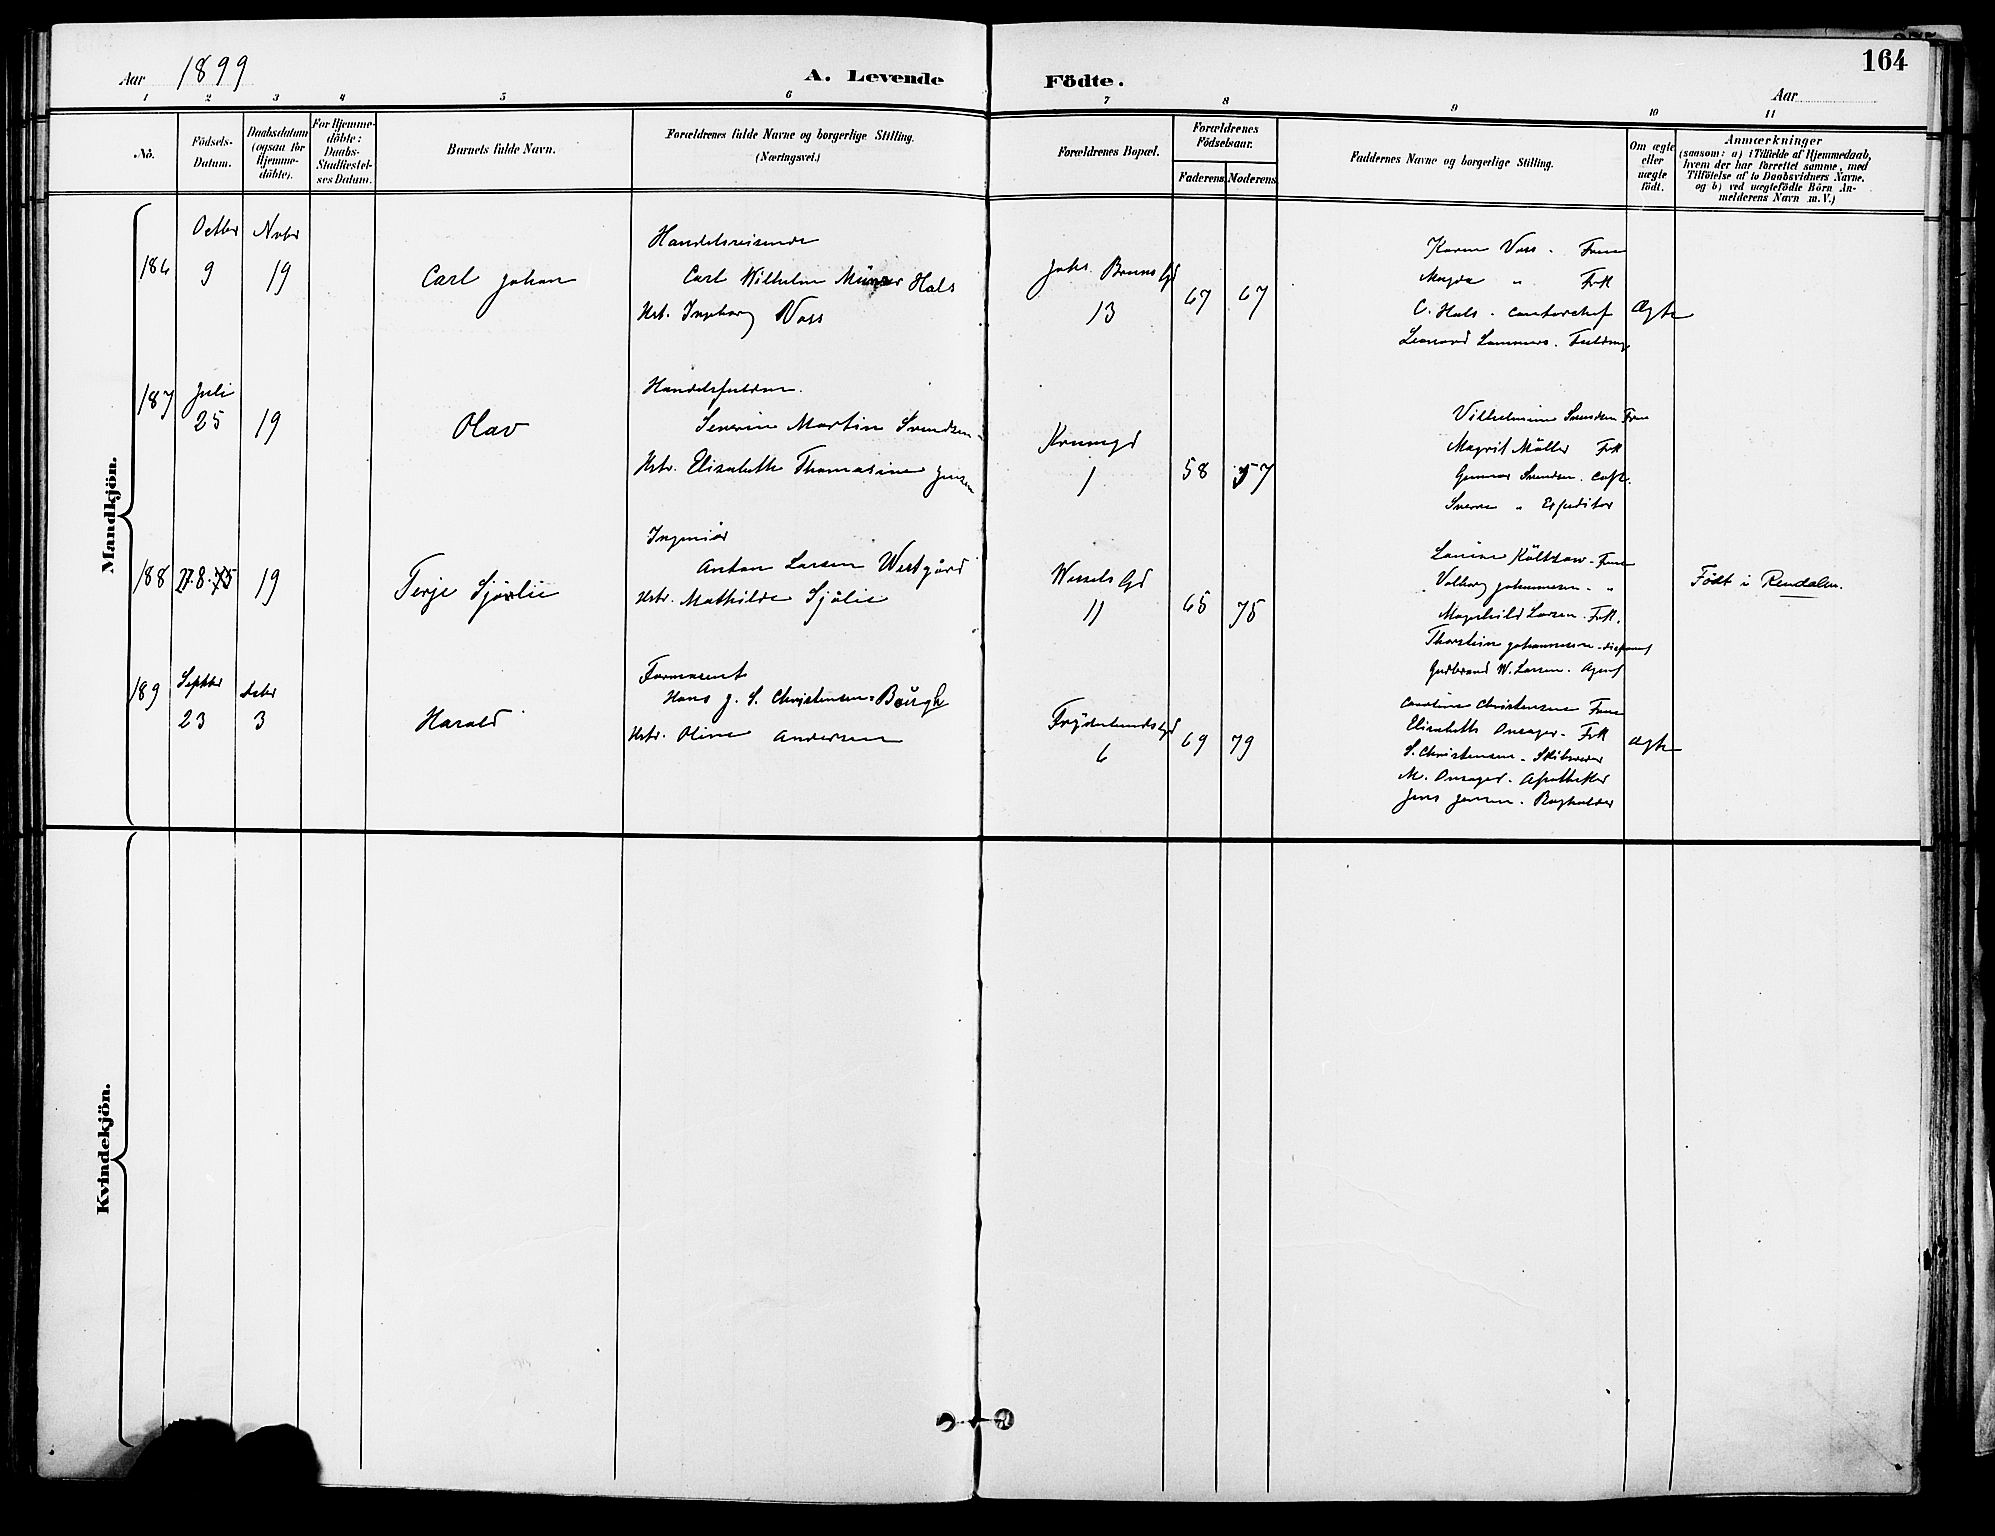 164
Aar 1899
A. Levende Födte.
Aar
1 2 3 4 5 6 7 8 9 10 11
No.
Födsels-Datum.
Daabsdatum (ogsaa för Hjemme-döbte).
For Hjemme-döbte: Daabs-Stadfæstel-ses Datum.
Barnets fulde Navn.
Forældrenes fulde Navne og borgerlige Stilling.
(Næringsvei.)
Forældrenes Bopæl.
Forældrenes Födselsaar.
Faderens Moderens
Faddernes Navne og borgerlige Stilling.
Om ægte eller uægte födt.
Anmærkninger
(saasom: a) i Tilfælde af Hjemmedaab,
hvem der har forrettet samme, med
Tilföielse af to Daabsvidners Navne,
og b) ved uægtefödte Börn An-
melderens Navn m. V.)
Mandkjön.
Octbr Novbr
186 9 19 Carl Johan
Handelsreisende
Carl Wilhelm Hals
Hst. Ingeborg Voss
Johs. Bruns Gd
13
67 67
Karen Voss. Frue
Magda " Frk
C. Hals. contorchef
Leonard Lammers.
Ægte
187 Juli 25 19 Olav
Severin Martin Svendsen
Hstr. Elisabeth Thomasine Jensen
1
58 57
Vilhelmine Svendsen Frue
Magrit Müller Frk
Gunnar Svendsen.
Sverre " Expeditor
188 27.8.75 19 Terje Sjølie
Ingeniör
Anton Larsen Westgård
Hstr. Mathilde Sjölie
Wessels Gd
11
65 75
Valborg Johannesen "
Magnhild Larsen. Frk.
Thorstein Johannesen
Gudbrand W. Larsen. Agent
Födt i Rendalen.
189 Septbr 23 Debr 3 Harald
Hans J. S. Christensen
Hstr. Oline Andersen
Frydenlunds Gd
6
69 79
Caroline Christensen Frue
Elisabeth Onsager. Frk
S. Christensen.
M. Onsager. Apotheker
Jens Jensen. Bogholder
Ægte
Kvindekjön.